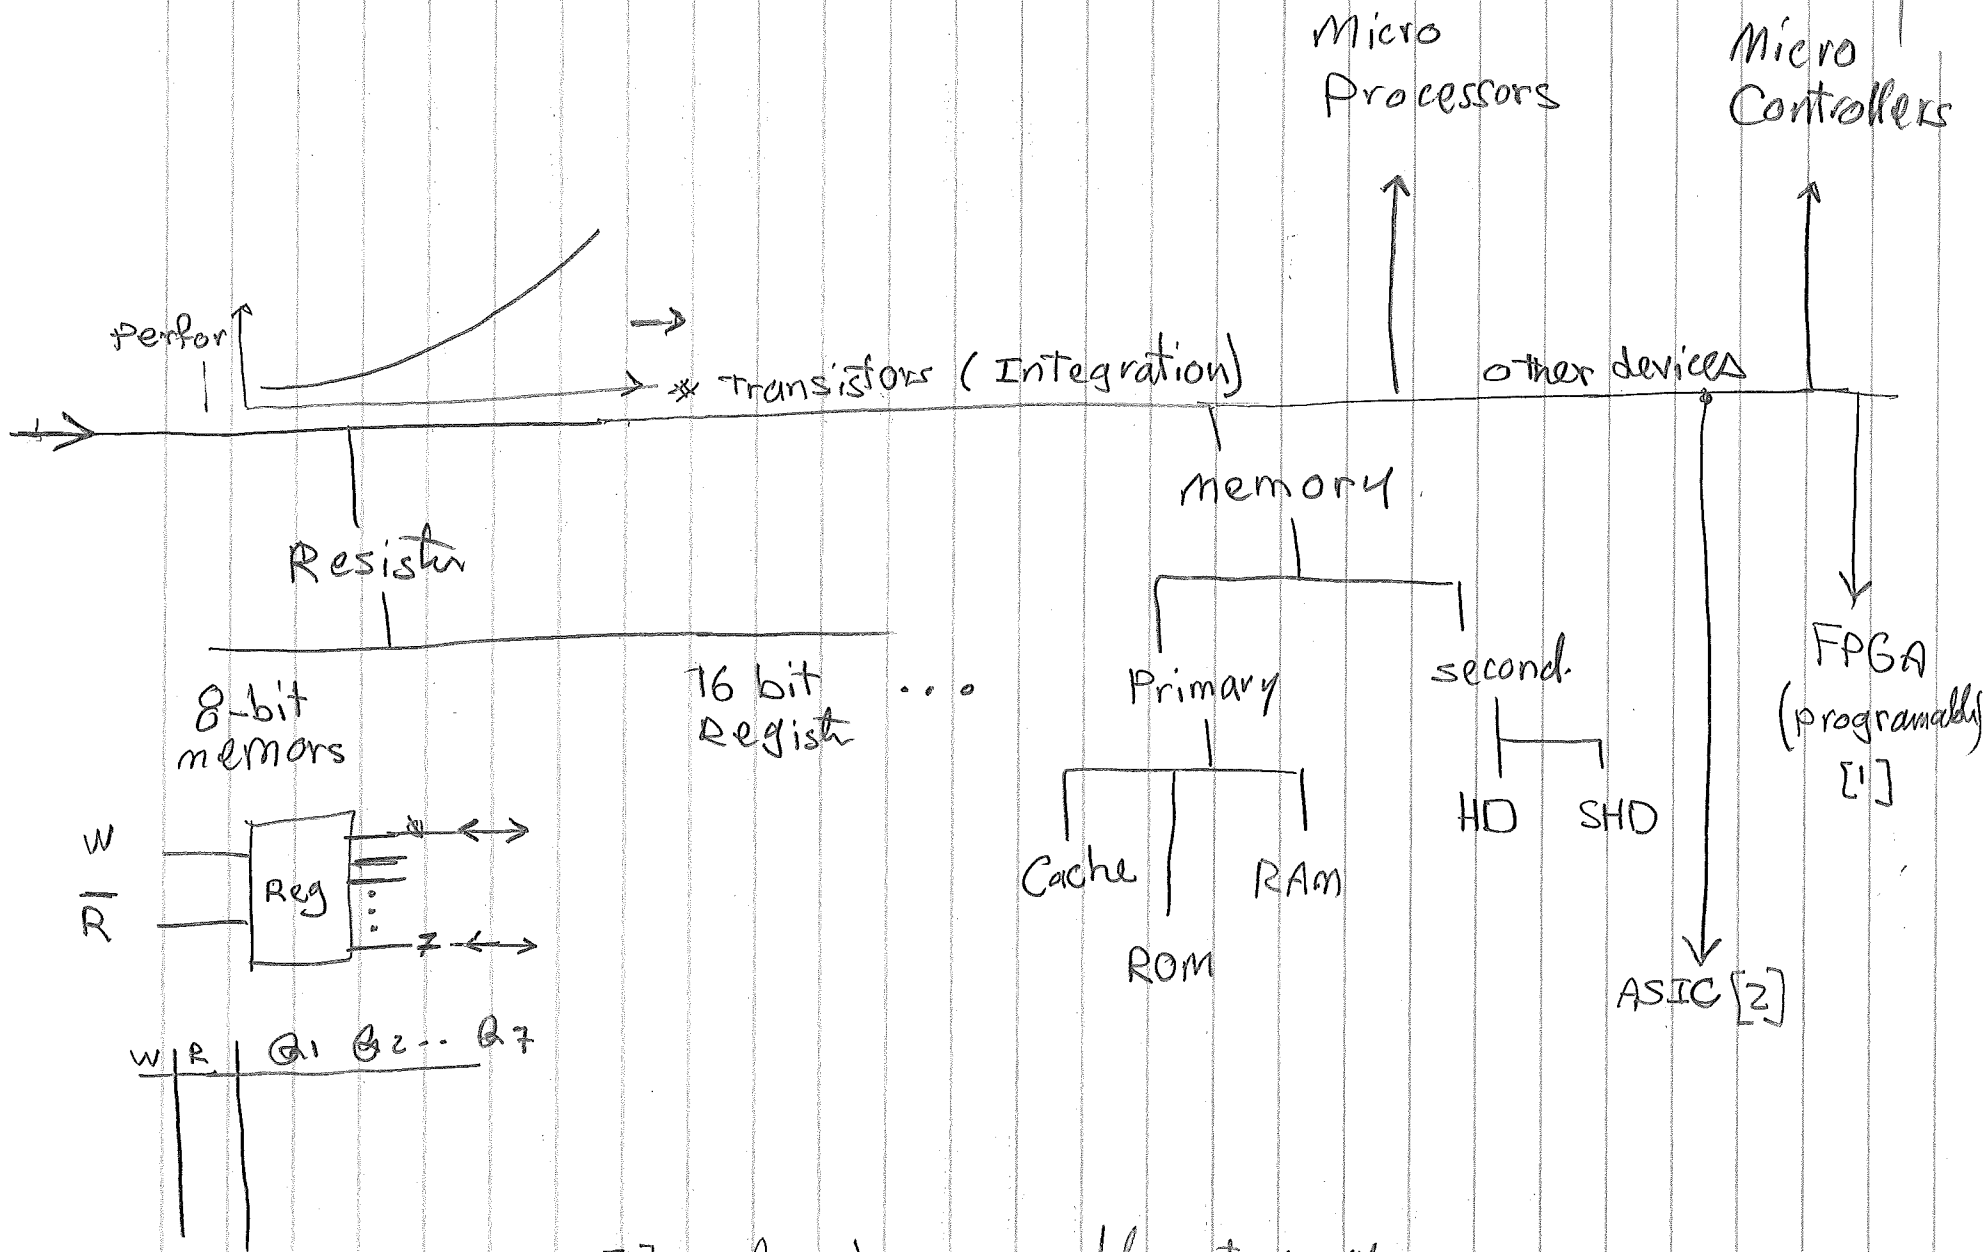 Micro
Processors
Micro
Controllers
Perfor
# Transistors (Integration)
other devices
memory
Resister
8-bit
memors
16 bit
Register
...
Primary
second.
FPGA
(programable)
[1]
HD
SHD
Cache
RAM
ROM
ASIC [2]
W
R
Reg
7
W R Q1 Q2 .. Q7